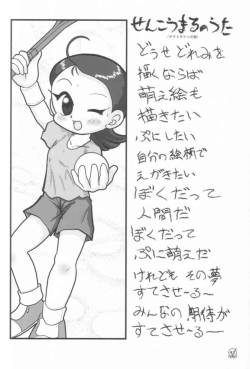 せんこうまるのうた
どうせ どれみを
描くならば
萌え絵も
描きたい
ぷにしたい
自分の絵柄で
えがきたい
ぼくだって
人間だ
ぼくだって
ぷに萌えだ
けれども その夢
すてさせ〜る〜
みんなの 期待が
すてさせ〜る〜